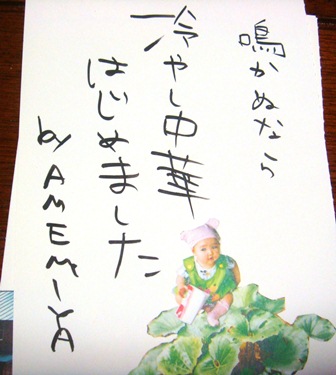 鳴かぬなら
冷やし中華
はじめました
by AMEMIYA